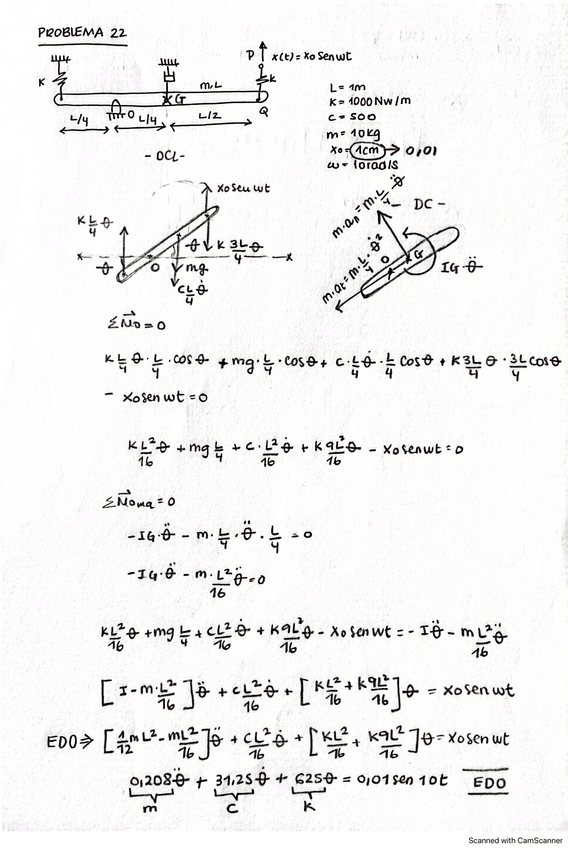 PROBLEMA 22
P x(t) = x₀ sen wt
K
K
m, L
G
O
Q
L/4
L/4
L/2
L = 1m
K = 1000 Nw/m
C = 500
m = 10kg
x₀ = 1cm → 0,01
ω = 10rad/s
- DCL -
- DC -
x₀ sen wt
K L/4 θ
θ
O
θ
K 3L/4 θ
x
x
mg
C L/4 θ̇
m·aₙ = m·L/4·θ̈
m·aₜ = m·L/4·θ̇²
O
G
IG·θ̈
ΣM⃗o = 0
K L/4 θ · L/4 · cos θ + mg · L/4 · cos θ + c · L/4 θ̇ · L/4 cos θ + K 3L/4 θ · 3L/4 cos θ
- x₀ sen wt = 0
K L²/16 θ + mg L/4 + c · L²/16 θ̇ + K 9L²/16 θ - x₀ sen wt = 0
ΣM⃗oma = 0
-IG·θ̈ - m·L/4·θ̈·L/4 = 0
-IG·θ̈ - m·L²/16 θ̈ = 0
KL²/16 θ + mg L/4 + cL²/16 θ̇ + K9L²/16 θ - x₀ sen wt = - Iθ̈ - m L²/16 θ̈
[I - m·L²/16] θ̈ + cL²/16 θ̇ + [KL²/16 + K9L²/16] θ = x₀ sen wt
EDO ⇒ [1/12 mL² - mL²/16] θ̈ + CL²/16 θ̇ + [KL²/16 + K9L²/16] θ = x₀ sen wt
0,208θ̈ + 31,25θ̇ + 625θ = 0,01 sen 10t EDO
m C K
Scanned with CamScanner